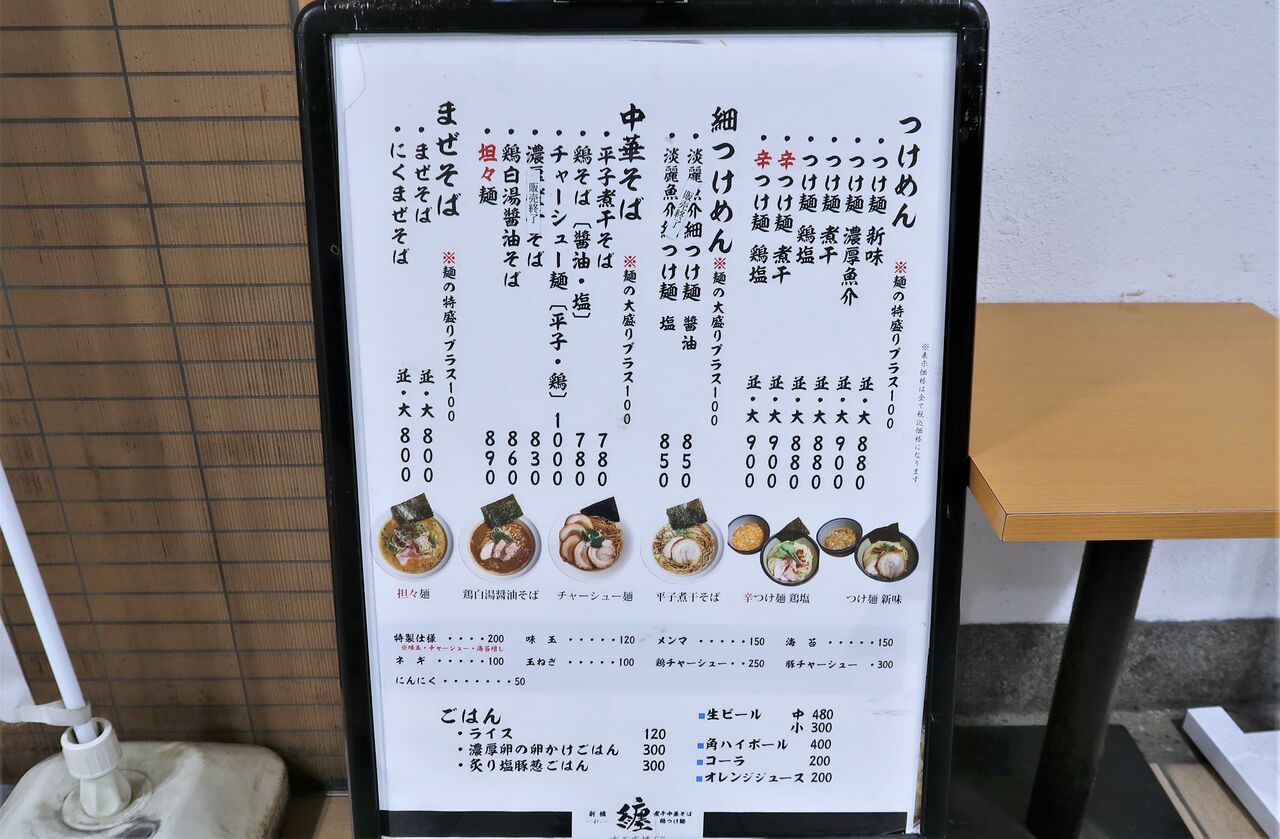 ※表示価格は全て税込価格になります。
つけめん ※麺の特盛りプラス100
・つけ麺 新味 並・大 880
・つけ麺 濃厚魚介 並・大 900
・つけ麺 煮干 並・大 880
・つけ麺 鶏塩 並・大 880
・辛つけ麺 煮干 並・大 900
・辛つけ麺 鶏塩 並・大 900
細つけめん ※麺の大盛りプラス100
・淡麗 介細つけ麺 醬油 850
販売終了
・淡麗魚介 つけ麺 塩 850
中華そば ※麺の大盛りプラス100
・平子煮干そば 780
・鶏そば〔醬油・塩〕 780
・チャーシュー麺〔平子・鶏〕 1000
・濃 そば 830
販売終了
・鶏白湯醬油そば 860
・担々麺 890
まぜそば ※麺の特盛りプラス100
・まぜそば 並・大 800
・にくまぜそば 並・大 800
担々麺 鶏白湯醬油そば チャーシュー麺 平子煮干そば 辛つけ麺 鶏塩 つけ麺 新味
特製仕様 ････200 味 玉 ･････120 メンマ ･････150 海 苔 ･････150
※味玉・チャーシュー・海苔増し
ネ ギ ･････100 玉ねぎ ･････100 鶏チャーシュー･･250 豚チャーシュー ･300
にんにく ･･･････50
ごはん
・ライス 120
・濃厚卵の卵かけごはん 300
・炙り塩豚葱ごはん 300
■生ビール 中 480
小 300
■角ハイボール 400
■コーラ 200
■オレンジジュース 200
新橋 纏 煮干中華そば
鶏つけ麺